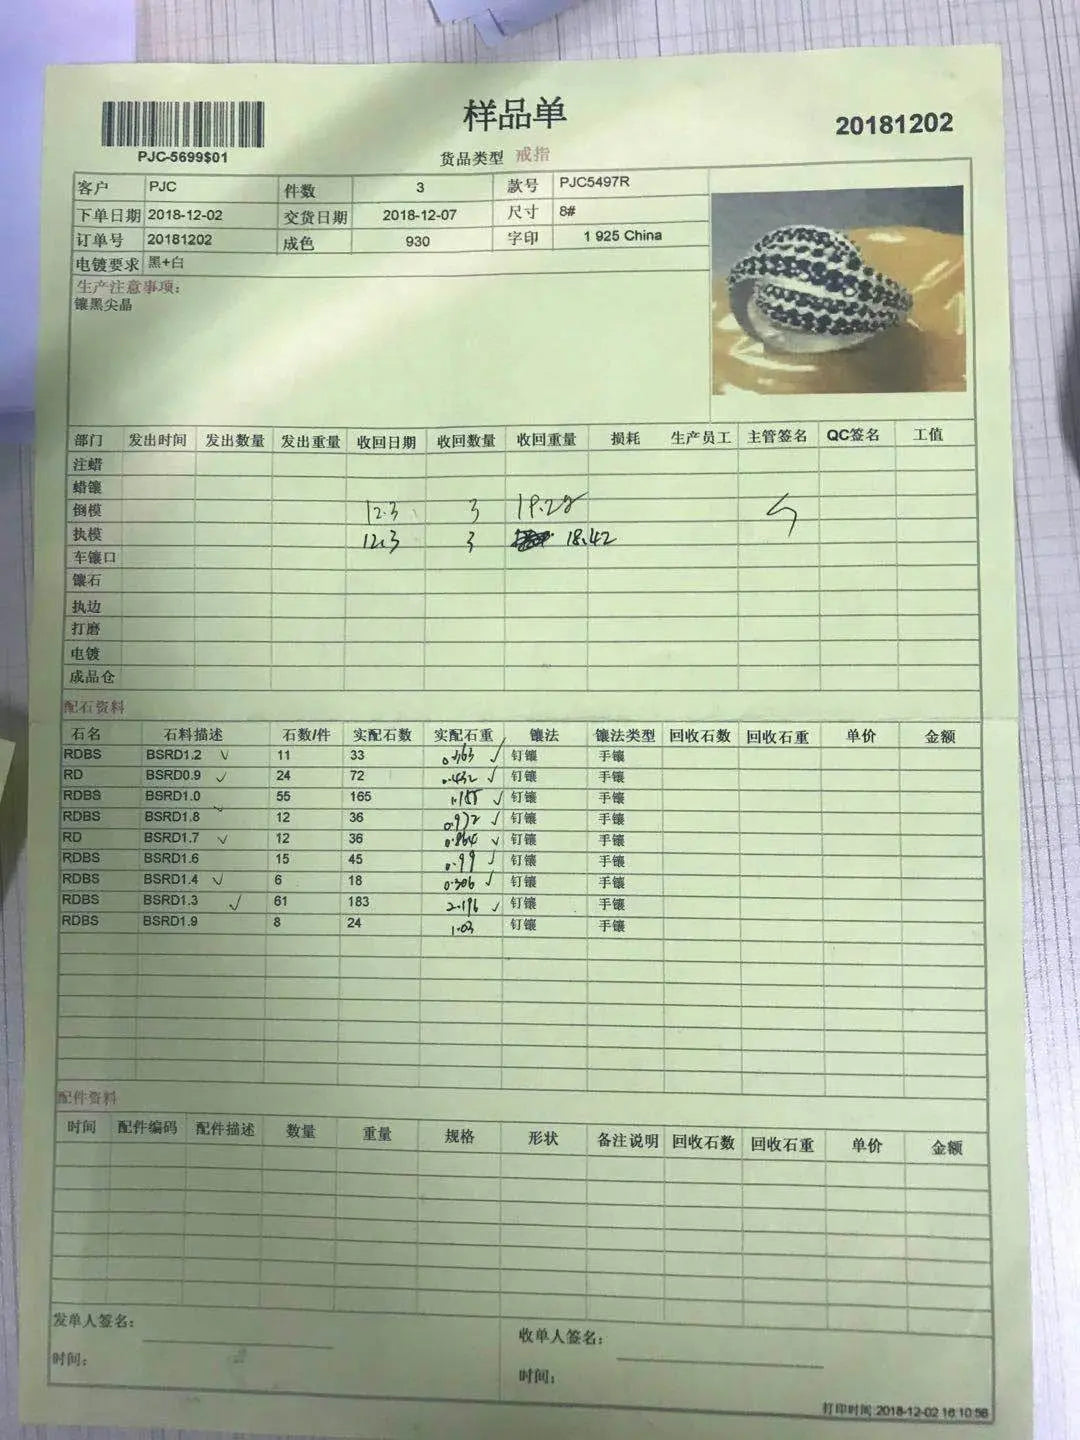 样品单
20181202
PJC-5699$01
货品类型 戒指
客户 PJC 件数 3 款号 PJC5497R
下单日期 2018-12-02 交货日期 2018-12-07 尺寸 8#
订单号 20181202 成色 930 字印 1 925 China
电镀要求 黑+白
生产注意事项:
镶黑尖晶
部门 发出时间 发出数量 发出重量 收回日期 收回数量 收回重量 损耗 生产员工 主管签名 QC签名 工值
注蜡
蜡镶
倒模 12.3 3 19.28
执模 12.3 3 18.42
车镶口
镶石
执边
打磨
电镀
成品仓
配石资料
石名 石料描述 石数/件 实配石数 实配石重 镶法 镶法类型 回收石数 回收石重 单价 金额
RDBS BSRD1.2 √ 11 33 √ 钉镶 手镶
RD BSRD0.9 √ 24 72 0.432 √ 钉镶 手镶
RDBS BSRD1.0 55 165 1.155 √ 钉镶 手镶
RDBS BSRD1.8 √ 12 36 0.972 √ 钉镶 手镶
RD BSRD1.7 √ 12 36 0.864 √ 钉镶 手镶
RDBS BSRD1.6 15 45 0.99 √ 钉镶 手镶
RDBS BSRD1.4 √ 6 18 0.306 √ 钉镶 手镶
RDBS BSRD1.3 √ 61 183 2.196 √ 钉镶 手镶
RDBS BSRD1.9 8 24 1.03 钉镶 手镶
配件资料
时间 配件编码 配件描述 数量 重量 规格 形状 备注说明 回收石数 回收石重 单价 金额
发单人签名: 收单人签名:
时间: 时间:
打印时间:2018-12-02 16:10:56